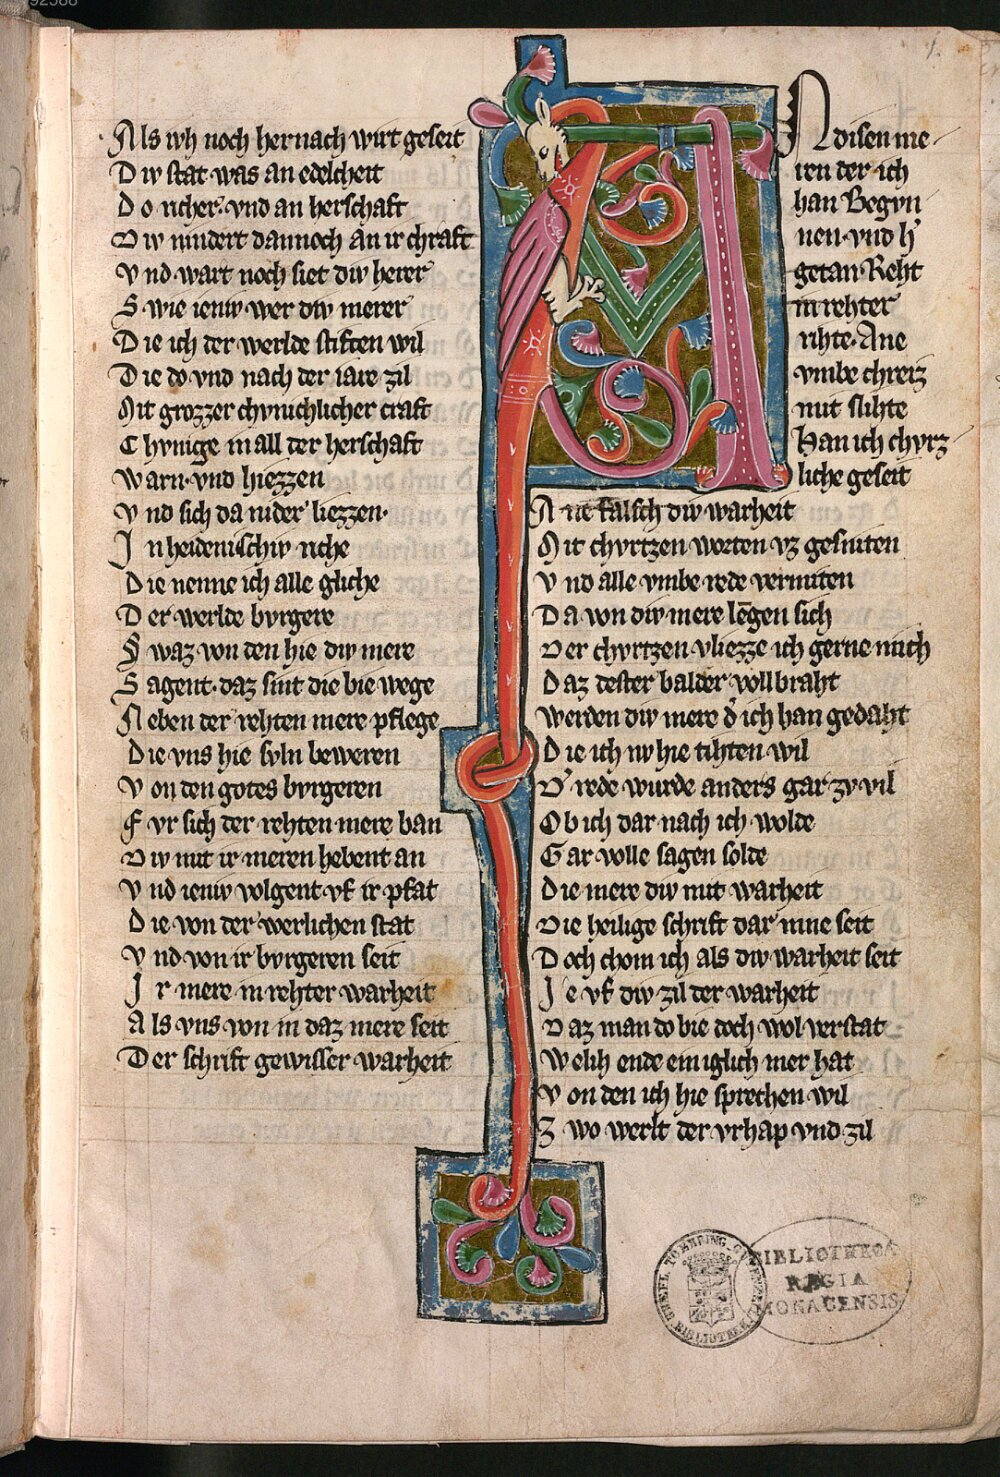 92588
1.
Als wh noch hernach wirt geseit
Div stat was an edelcheit
Do richer vnd an herschaft
Div mindert dannoch an ir chraft
Vnd wart noch siet div herer
Swie ieniv wer div merer
Die ich der werlde stiften wil
Die do vnd nach der iare zil
Mit grozzer chvnichlicher craft
Chvnige in all der herschaft
Warn vnd hiezzen
Vnd sich da nider liezzen
In heidenischiv riche
Die nenne ich alle gliche
Der werlde bvrgere
Swaz von den hie div mere
Sagent daz sint die bie wege
Neben der rehten mere pflege
Die vns hie svln beweren
Von den gotes bvrgeren
Fvr sich der rehten mere ban
Div mit ir meren hebent an
Vnd ieniv volgent vf ir pfat
Die von der werlichen stat
Vnd von ir bvrgeren seit
Ir mere in rehter warheit
Als vns von in daz mere seit
Der schrift gewisser warheit
A
N disen me
ren der ich
han Begvn
nen vnd h
getan Reht
in rehter
rihte Ane
vmbe chreiz
mit slihte
Han ich chvrz
liche geseit
Ane falsch div warheit
Mit chvrtzen worten vz gesniten
Vnd alle vmbe rede vermiten
Da von div mere lēgen sich
Der chvrtzen vliezze ich gerne mich
Daz dester balder vollbraht
Werden div mere d̾ ich han gedaht
Die ich nv hie tihten wil
D̾ rede wurde anders gar zv vil
Ob ich dar nach ich wolde
Gar volle sagen solde
Die mere div mit warheit
Die heilige schrift dar inne seit
Doch chom ich als div warheit seit
Ie vf div zil der warheit
Daz man do bie doch wol verstat
Welih ende einiglich mer hat
Von den ich hie sprechen wil
Zwo werlt der vrhap vnd zil
BIBLIOTHECA
REGIA
MONACENSIS